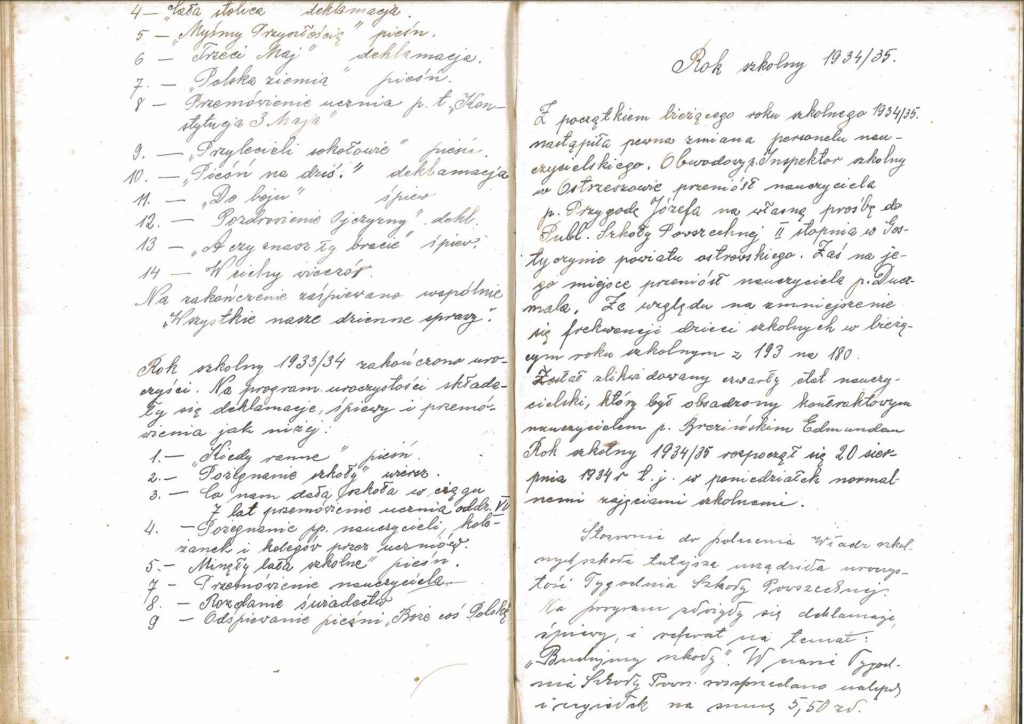 4 — „Cała stolica deklamacja.
5 — „Myśmy Przyszłością" pieśń.
6 — Trzeci Maj" deklamacja.
7. — „Polska ziemia" pieśń.
8 — Przemówienie ucznia p. t. „Kon-
stytucja 3 Maja"
9. — „Przylecieli sokołowie" pieśń.
10. — „Pieśń na dziś." deklamacja
11. — „Do boju" śpiew
12. — Pozdrowienie Ojczyzny" dekl.
13 — „A czy znasz ty bracie" śpiew
14 — W cichy wieczór.
Na zakończenie zaśpiewano wspólnie
„Wszystkie nasze dzienne sprawy".
Rok szkolny 1933/34 zakończono uro-
czyści. Na program uroczystości składa-
ły się deklamacje, śpiewy i przemó-
wienia jak niżej:
1. — "Kiedy ranne" pieśń.
2. — "Pożegnanie szkoły" wiersz.
3. — Co nam dała szkoła w ciągu
7 lat przemówienie ucznia oddz. VII
4. — Pożegnanie pp. nauczycieli, kole-
żanek i kolegów przez uczniów.
5. — Minęły lata szkolne" pieśń.
7 — Przemówienie nauczyciela
8. — Rozdanie świadectw
9 — Odśpiewanie pieśni „Boże coś Polskę
Rok szkolny 1934/35.
Z początkiem bieżącego roku szkolnego 1934/35.
nastąpiła pewna zmiana personelu nau-
czycielskiego. Obwodowy p. Inspektor szkolny
w Ostrzeszowie przeniósł nauczyciela
p. Przygodę Józefa na własną prośbę do
Publ. Szkoły Powszechnej II stopnia w Goś-
tyczynie powiatu ostrowskiego. Zaś na je-
go miejsce przeniósł nauczyciela p. Duc-
mala. Ze względu na zmniejszenie
się frekwencji dzieci szkolnych w bieżą-
cym roku szkolnym z 193 na 180.
Został zlikwidowany czwarty etat nauczy-
cielski, który był obsadzony kontraktowym
nauczycielem p. Brezińskim Edmundem
Rok szkolny 1934/35 rozpoczął się 20 sier-
pnia 1934 r t. j. w poniedziałek normal-
nemi zajęciami szkolnemi.
Stosownie do polecenia Władz szkol-
nych szkoła tutejsza urządziła uroczys-
tość Tygodnia Szkoły Powszechnej.
Na program złożyły się deklamacje,
śpiewy, i referat na temat:
„Budujmy szkoły". W czasie Tygod-
nia Szkoły Pow. rozsprzedano nalepek
i cegiełek na sumę 5,50 zł.